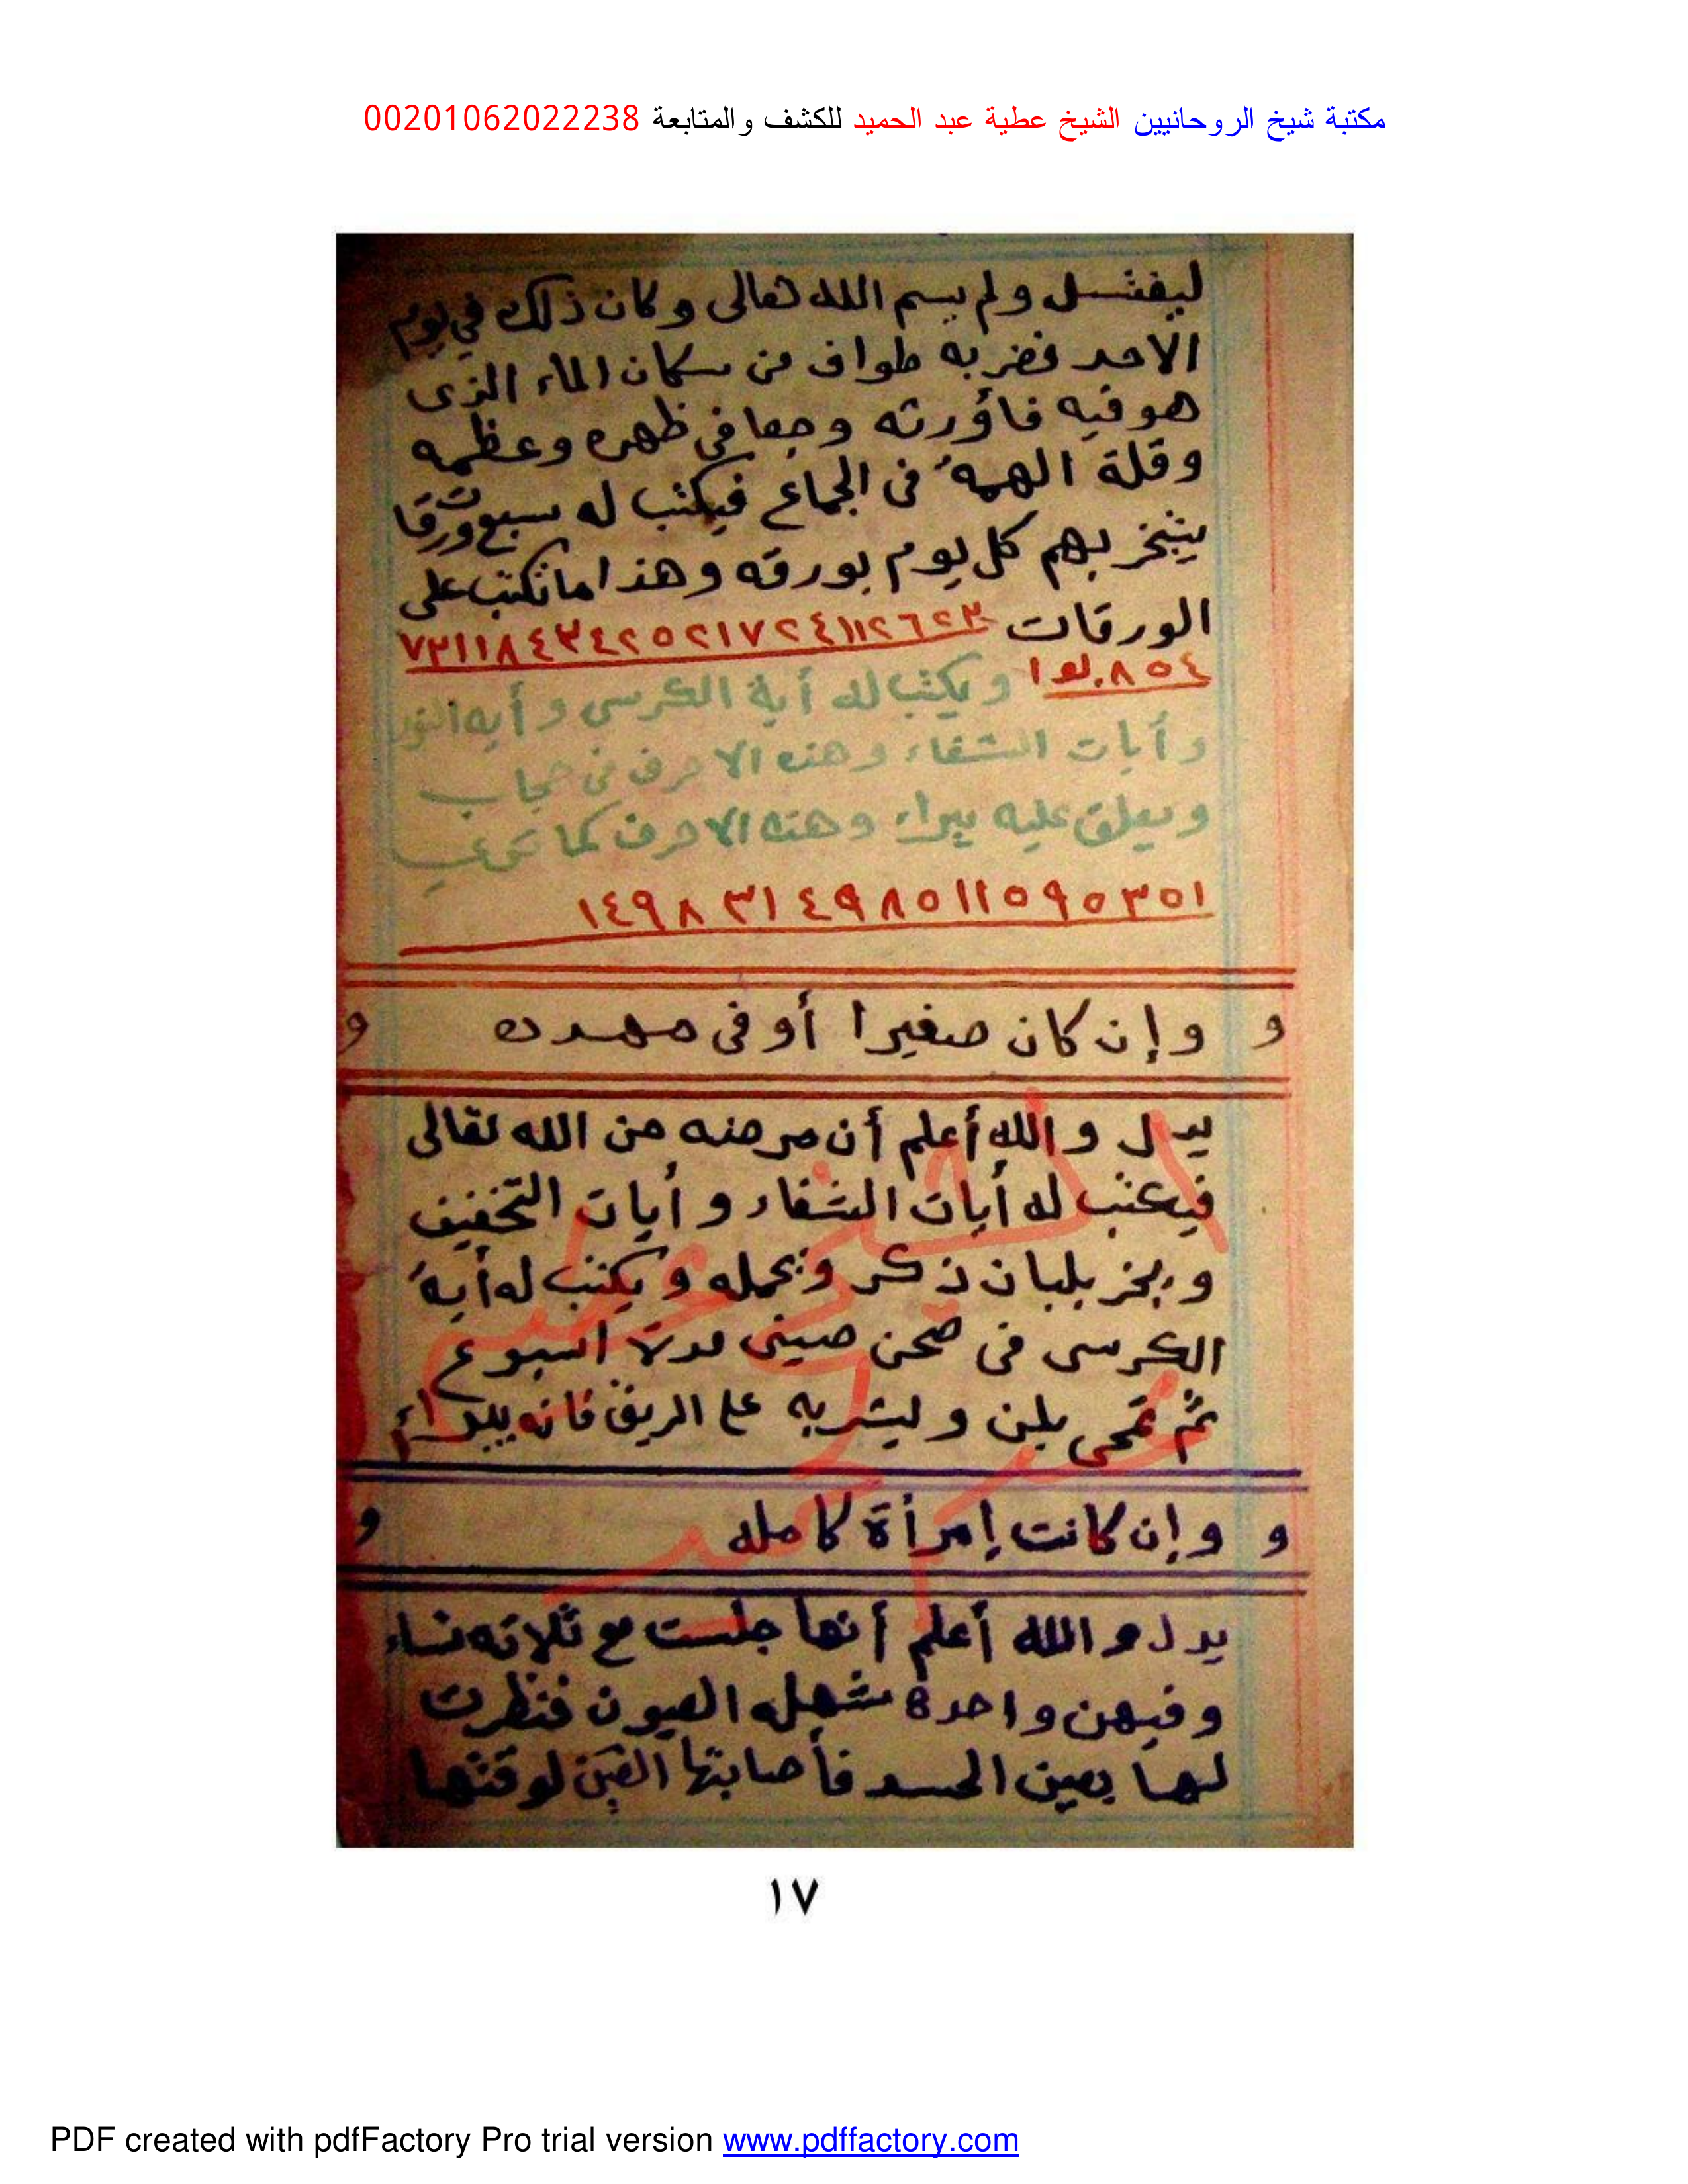 مكتبة شيخ الروحانيين الشيخ عطية عبد الحميد للكشف والمتابعة 00201062022238
ليغتسل ولم يسم الله تعالى وكان ذلك في يوم
الاحد فضربه طواف من سكان الماء الذى
هو فيه فأورثه وجعا في ظهره وعظمه
وقلة الهمة فى الجماع فيكتب له سبع ورقات
يتبخر بهم كل يوم بورقه وهذا ما تكتب على
الورقات ٢٣ ٢٦ ١١٢ ٢٤ ٧ ٢١ ٢٥ ٣٤٢ ٧٣١١٨٤
٨٥٤ ويكتب له أية الكرسى وأيه النور
وأيات الشفاء وهذه الاحرف فى حجاب
ويعلق عليه يبراء وهذه الاحرف كما
١٤٩٨ ٣١ ٤٩٨٥١١٥٩٥٣٥١
و وإن كان صغيرا أو فى مهده و
يدل والله أعلم أن مرضه من الله تعالى
فيكتب له أيات الشفاء وأيات التخفيف
ويبخر بلبان ذكر ويحمله ويكتب له أية
الكرسى فى صحن صينى مدة اسبوع
ثم تمحى بلبن وليشربه على الريق فانه يبراء
و وإن كانت إمرأة كامله و
يدل والله أعلم أنها جلست مع ثلاثه نساء
وفيهن واحدة شهله العيون فنظرت
لها بعين الحسد فأصابتها العين لوقتها
١٧
PDF created with pdfFactory Pro trial version www.pdffactory.com